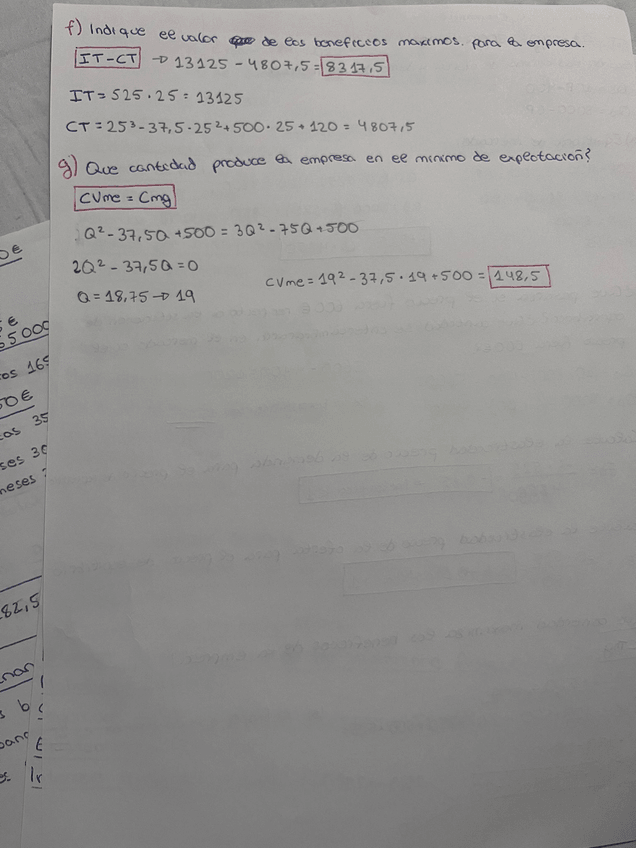 f) Indique el valor de los beneficios maximos. para la empresa.
IT-CT → 13125 - 4807,5 = 8317,5
IT = 525 · 25 = 13125
CT = 25³ - 37,5 · 25² + 500 · 25 + 120 = 4807,5
g) Que cantidad produce la empresa en el minimo de explotación?
CVme = Cmg
Q² - 37,5Q + 500 = 3Q² - 75Q + 500
2Q² - 37,5Q = 0
Q = 18,75 → 19
CVme = 19² - 37,5 · 19 + 500 = 148,5
0€
€
5000
os 165
50€
os 35
ses 30
meses
82,5